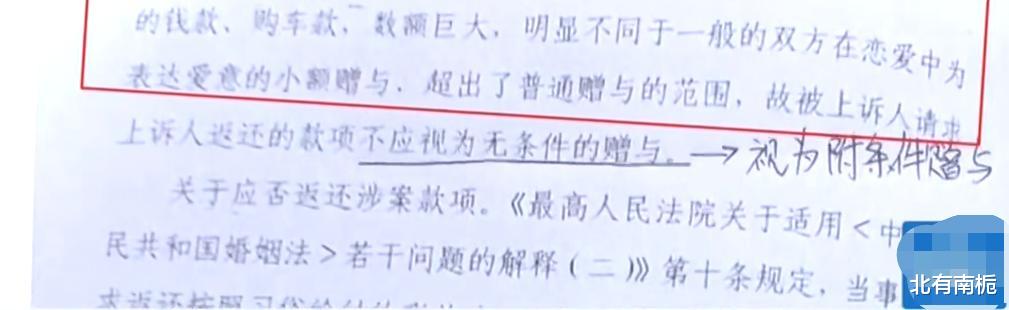 的钱款、购车款,数额巨大,明显不同于一般的双方在恋爱中为
表达爱意的小额赠与,超出了普通赠与的范围,故被上诉人请求
上诉人返还的款项不应视为无条件的赠与。→视为附条件赠与
关于应否返还涉案款项。《最高人民法院关于适用<中
民共和国婚姻法>若干问题的解释(二)》第十条规定,当事
求返还按照习俗给付的
北有南栀